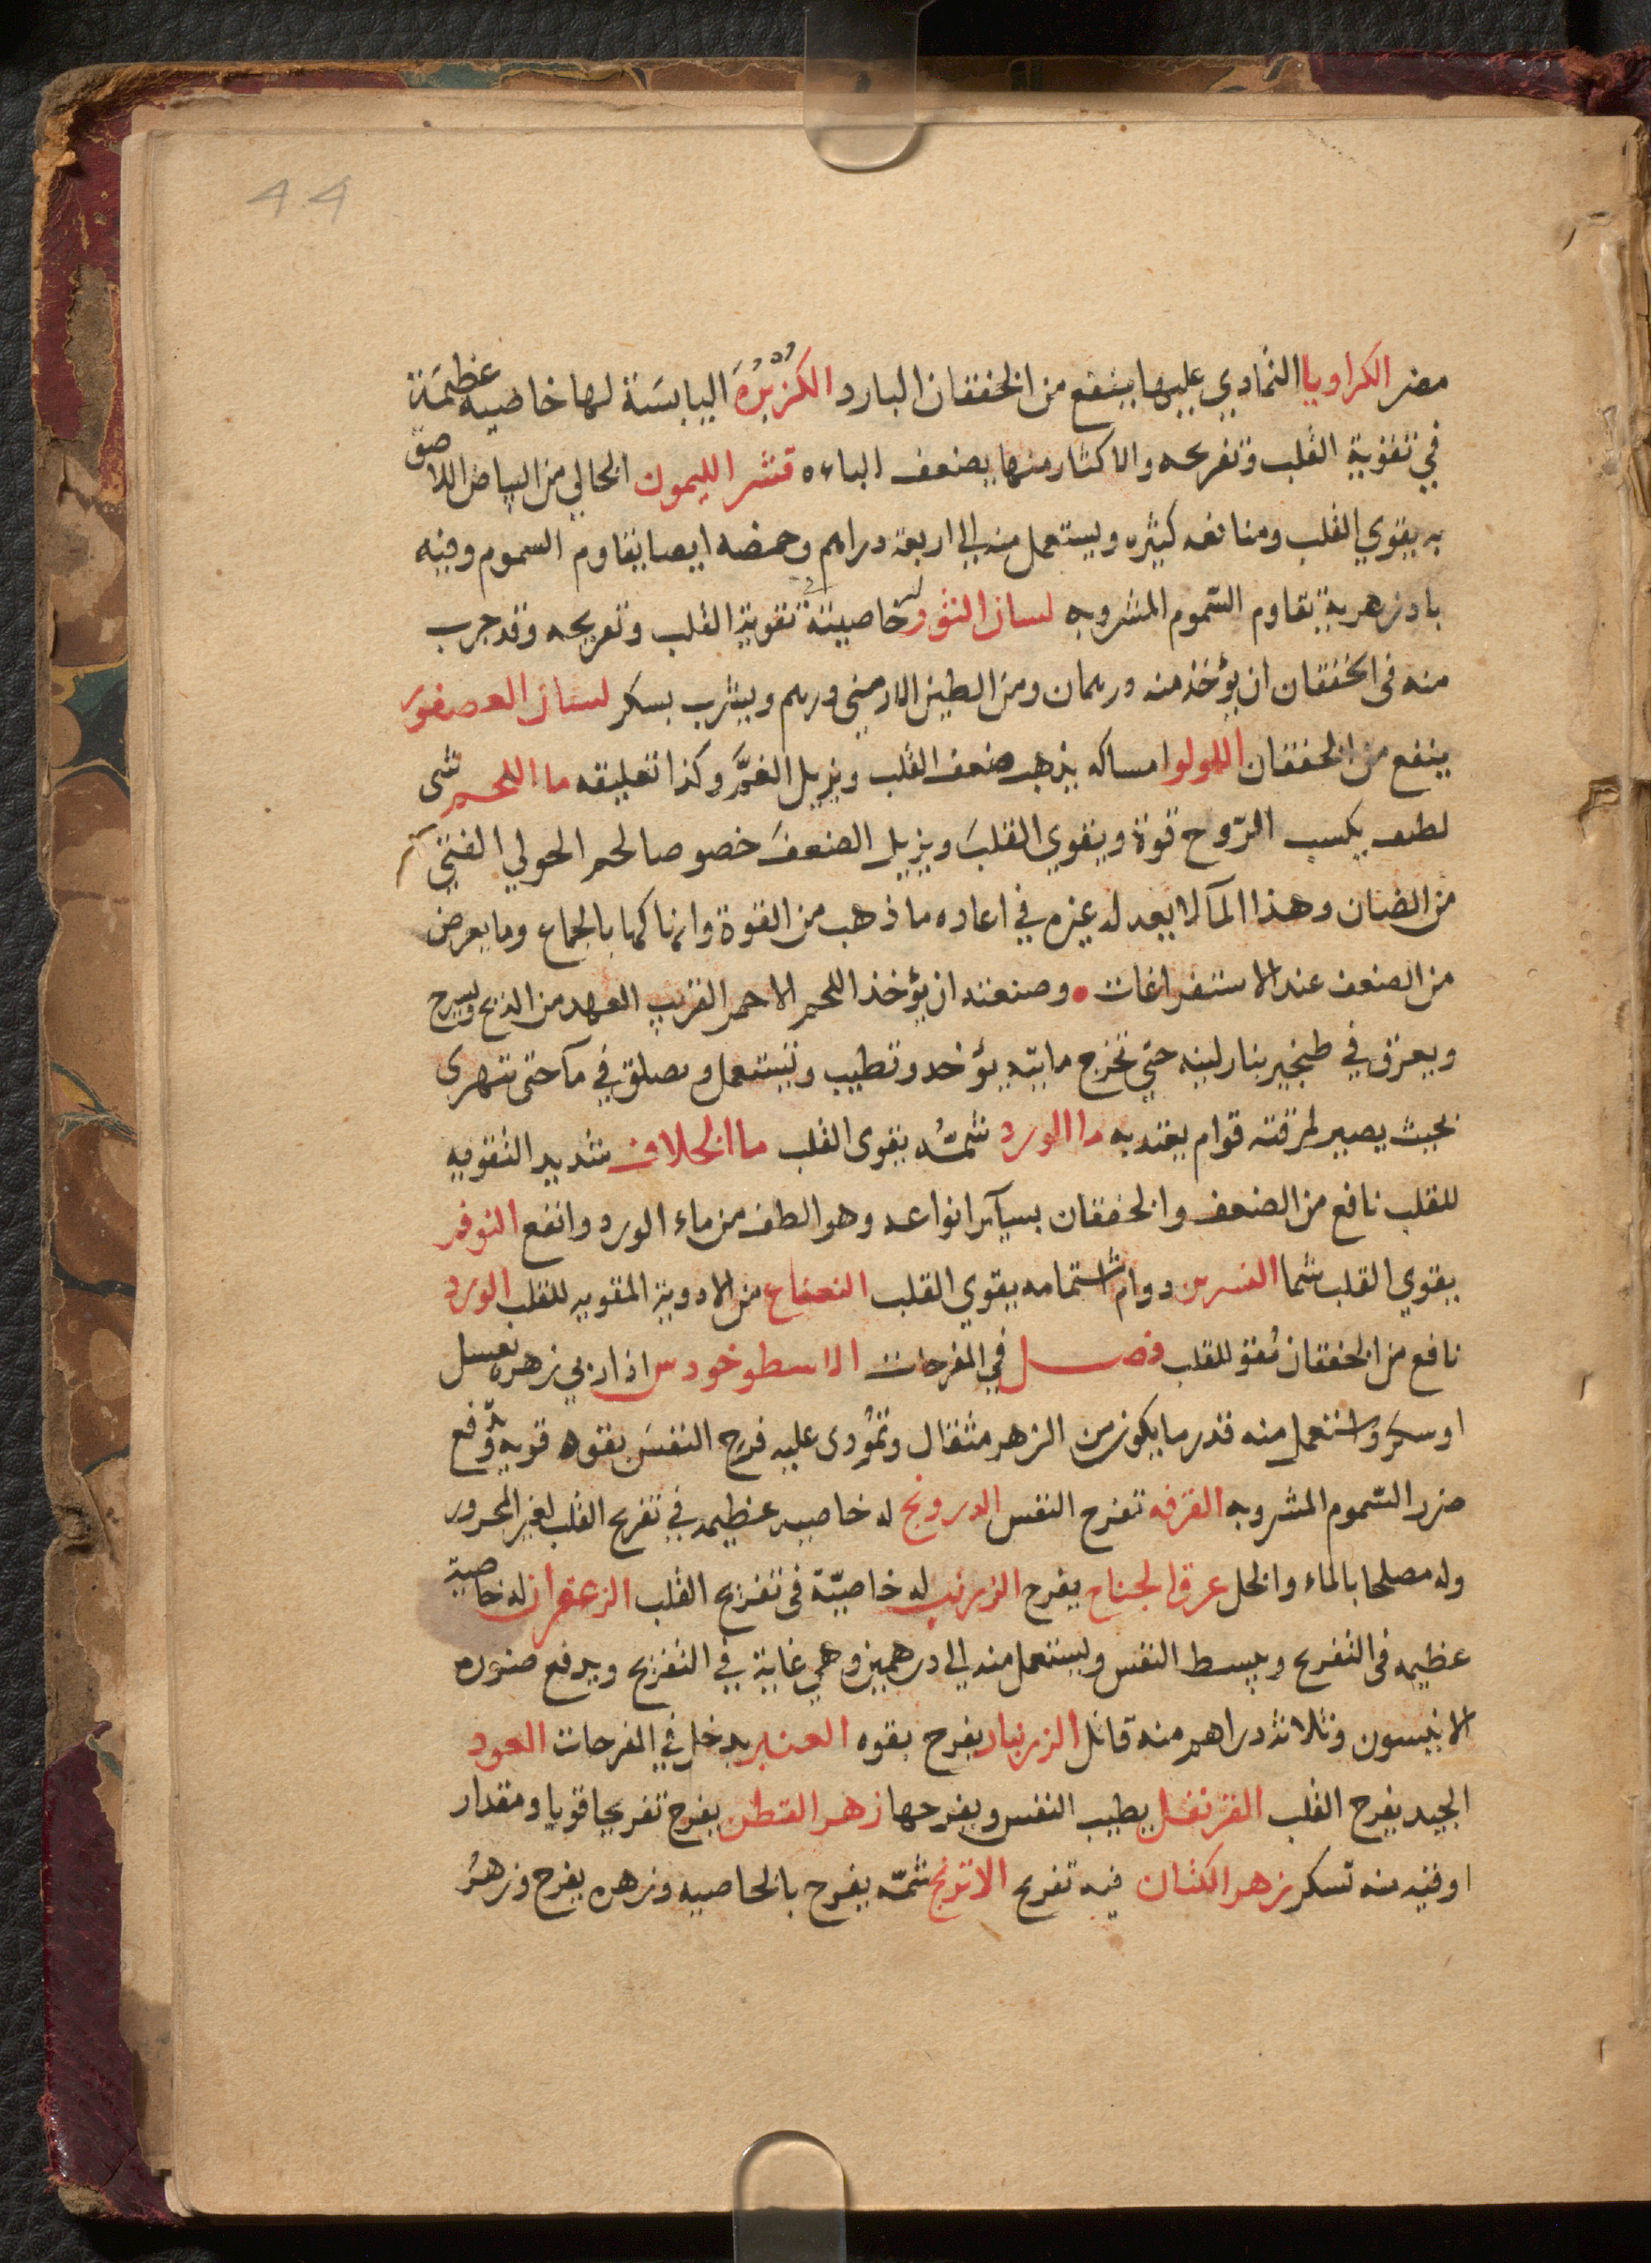 44
مضر الكراويا التمادي عليها ينفع من الخفقان البارد الكزبرة اليابسة لها خاصيه عظيمة
في تقوية القلب وتفريحه والاكثار منها يضعف الباءه قشر الليمون الخالي من البياض اللاصق
به يقوي القلب ومنافعه كثيره ويستعمل منه الي اربعة دراهم وحمضه ايضا يقاوم السموم وفيه
بادزهرية تقاوم السّموم المشروبه لسان الثور له خاصية في تقوية القلب وتفريحه وقد جرب
منه فى الخفقان ان يؤخذ منه درهمان ومن الطين الارمني درهم ويشرب بسكر لسان العصفور
ينفع من الخفقان اللولو امساكه يذهب ضعف القلب ويزيل الغمّ وكذا تعليقه ما اللحم شى
لطيف يكسب الرّوح قوة ويقوي القلبَ ويزيل الضعفَ خصوصا لحم الحولي الفتي
من الضان وهذا المآ لا يعدله غيره في اعاده ما ذهب من القوة وانهاكها بالجماع وما يعرض
من الضعف عند الاستفراغات • وصنعته ان يؤخذ اللحم الاحمر القريب العهد من الذبح ويشرح
ويعرق في طنجير بنار لينه حتي تخرج مايته يؤخد وتطيب وتستعمل وىصلق في مآ حتى تتهرى
بحيث يصير لمرقته قوام يعتد به ما الورد شمّه يقوى القلب ما الخلاف شديد التقويه
للقلب نافع من الضعف والخفقان بسآير انواعه وهو الطف من ماء الورد وانفع النوفر
يقوي القلب شما النسرين دوام اشتمامه يقوي القلب النعناع من الادوية المقويه للقلب الورد
نافع من الخفقان مُقو للقلب فصل في المفرحات الاسطوخودس اذا ربي زهره بعسل
او سكر واستعمل منه قدر ما يكون من الزهر مثقال وتمُودى عليه فرح النفسَ بقوه قويه ودفع
ضرر السّموم المشروبه القرفه تفرح النفس الدرونج له خاصيه عظيمه في تفريح القلب لغير المحرور
وله مصلحا بالماء والخل عرق الجناح يفرح الزرنب له خاصيّة فى تفريح القلب الزعفران له خاصية
عظيمه فى التفريح ويبسط النفس ويستعمل منه الي درهمين وهي غاية في التفريح ويدفع ضرره
الانيسون وثلاثة دراهم منه قاتل الزرنباد يفرح بقوه العنبر يدخل في المفرحات العود
الجيد يفرح القلب القرنفل يطيب النفس ويفرحها زهر القطن يفرح تفريجا قويا ومقدار
اوقيه منه تسكر زهر الكتان فيه تفريح الاترنج شمّه يفرح بالخاصيه وزهره يفرح وزهرُ